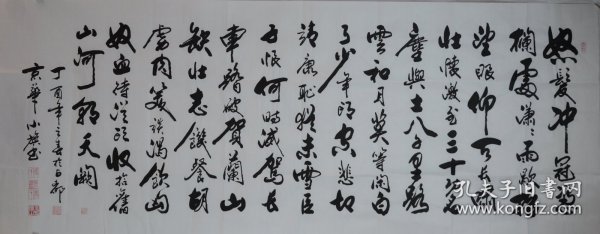 怒髮冲冠凭
欄處潇潇雨歇抬
望眼仰天长啸
壮懷激烈三十功名
塵與土八千里路
雲和月莫等閑白
了少年頭空悲切
靖康恥猶未雪臣
子恨何時滅駕長
車踏破賀蘭山
缺壮志饑餐胡
虜肉笑談渴飲匈
奴血待從頭收拾舊
山河朝天闕
丁酉年之春於
京華
孔夫子旧书网
kongfz.com